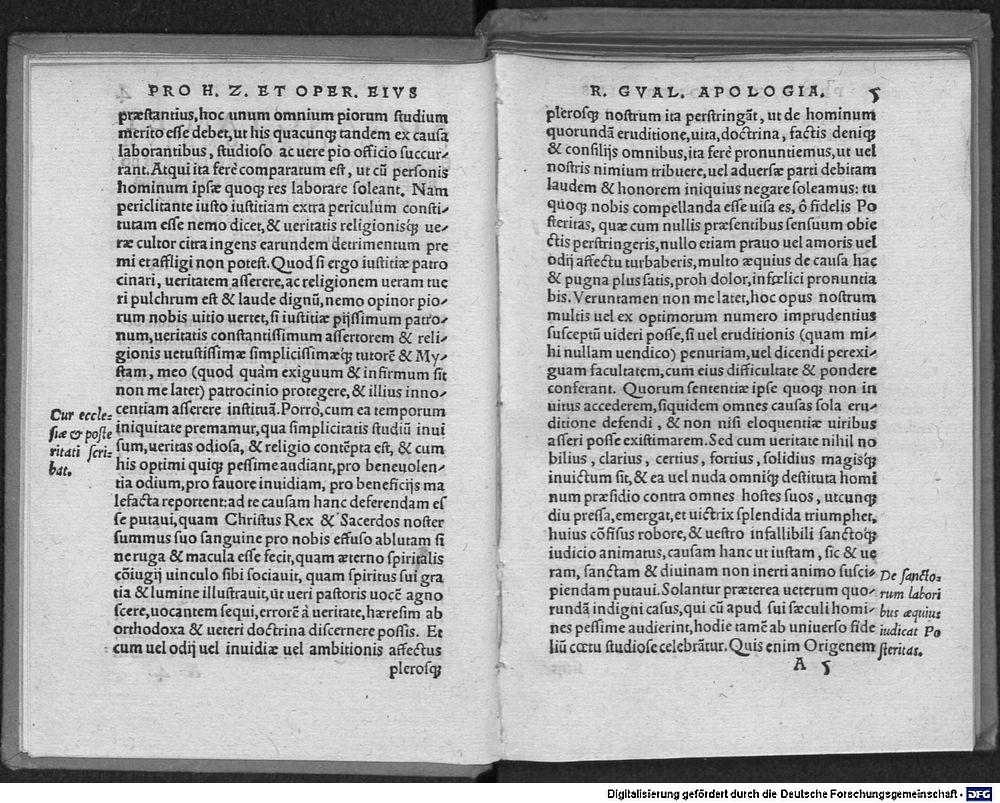 PRO H. Z. ET OPER. EIVS
præstantius, hoc unum omnium piorum studium
merito esse debet, ut his quacunqꝫ tandem ex causa
laborantibus, studioso ac uere pio officio succur-
rant. Atqui ita ferè comparatum est, ut cũ personis
hominum ipsæ quoqꝫ res laborare soleant. Nam
periclitante iusto iustitiam extra periculum consti-
tutam esse nemo dicet, & ueritatis religionisqꝫ ue-
ræ cultor citra ingens earundem detrimentum pre
mi et affligi non potest. Quod si ergo iustitiæ patro
cinari, ueritatem asserere, ac religionem ueram tue
ri pulchrum est & laude dignũ, nemo opinor pio-
rum nobis uitio uertet, si iustitiæ pijssimum patro-
num, ueritatis constantissimum assertorem & reli-
gionis uetustissimæ simplicissimæqꝫ tutorẽ & My-
stam, meo (quod quàm exiguum & infirmum sit
non me latet) patrocinio protegere, & illius inno-
centiam asserere instituã. Porrò, cum ea temporum
iniquitate premamur, qua simplicitatis studiũ inui
sum, ueritas odiosa, & religio contẽpta est, & cum
his optimi quiqꝫ pessime audiant, pro beneuolen-
tia odium, pro fauore inuidiam, pro beneficijs ma
lefacta reportent: ad te causam hanc deferendam es
se putaui, quam Christus Rex & Sacerdos noster
summus suo sanguine pro nobis effuso ablutam si
ne ruga & macula esse fecit, quam æterno spiritalis
cõiugij uinculo sibi sociauit, quam spiritus sui gra
tia & lumine illustrauit, ut ueri pastoris uocẽ agno
scere, uocantem sequi, errorẽ à ueritate, hæresim ab
orthodoxa & ueteri doctrina discernere possis. Et
cum uel odij uel inuidiæ uel ambitionis affectus
plerosqꝫ
Cur eccle-
siæ & poste
ritati scri-
bat.
R. GVAL. APOLOGIA. 5
plerosqꝫ nostrum ita perstringãt, ut de hominum
quorundã eruditione, uita, doctrina, factis deniqꝫ
& consilijs omnibus, ita ferè pronuntiemus, ut uel
nostris nimium tribuere, uel aduersæ parti debitam
laudem & honorem iniquius negare soleamus: tu
quoqꝫ nobis compellanda esse uisa es, ô fidelis Po
steritas, quæ cum nullis præsentibus sensuum obie
ctis perstringeris, nullo etiam prauo uel amoris uel
odij affectu turbaberis, multo æquius de causa hac
& pugna plus satis, proh dolor, infœlici pronuntia
bis. Veruntamen non me latet, hoc opus nostrum
multis uel ex optimorum numero imprudentius
susceptũ uideri posse, si uel eruditionis (quam mi-
hi nullam uendico) penuriam, uel dicendi perexi-
guam facultatem, cum eius difficultate & pondere
conferant. Quorum sententiæ ipse quoqꝫ non in
uitus accederem, siquidem omnes causas sola eru-
ditione defendi, & non nisi eloquentiæ uiribus
asseri posse existimarem. Sed cum ueritate nihil no
bilius, clarius, certius, fortius, solidius magisqꝫ
inuictum sit, & ea uel nuda omniqꝫ destituta homi
num præsidio contra omnes hostes suos, utcunqꝫ
diu pressa, emergat, et uictrix splendida triumphet,
huius cõfisus robore, & uestro infallibili sanctoqꝫ
iudicio animatus, causam hanc ut iustam, sic & ue
ram, sanctam & diuinam non inerti animo susci-
piendam putaui. Solantur præterea ueterum quo-
rundã indigni casus, qui cũ apud sui sæculi homi-
nes pessime audierint, hodie tamẽ ab uniuerso fide
liũ cœtu studiose celebrãtur. Quis enim Origenem
A 5
De sancto-
rum labori
bus æquius
iudicat Po
steritas.
Digitalisierung gefördert durch die Deutsche Forschungsgemeinschaft - DFG